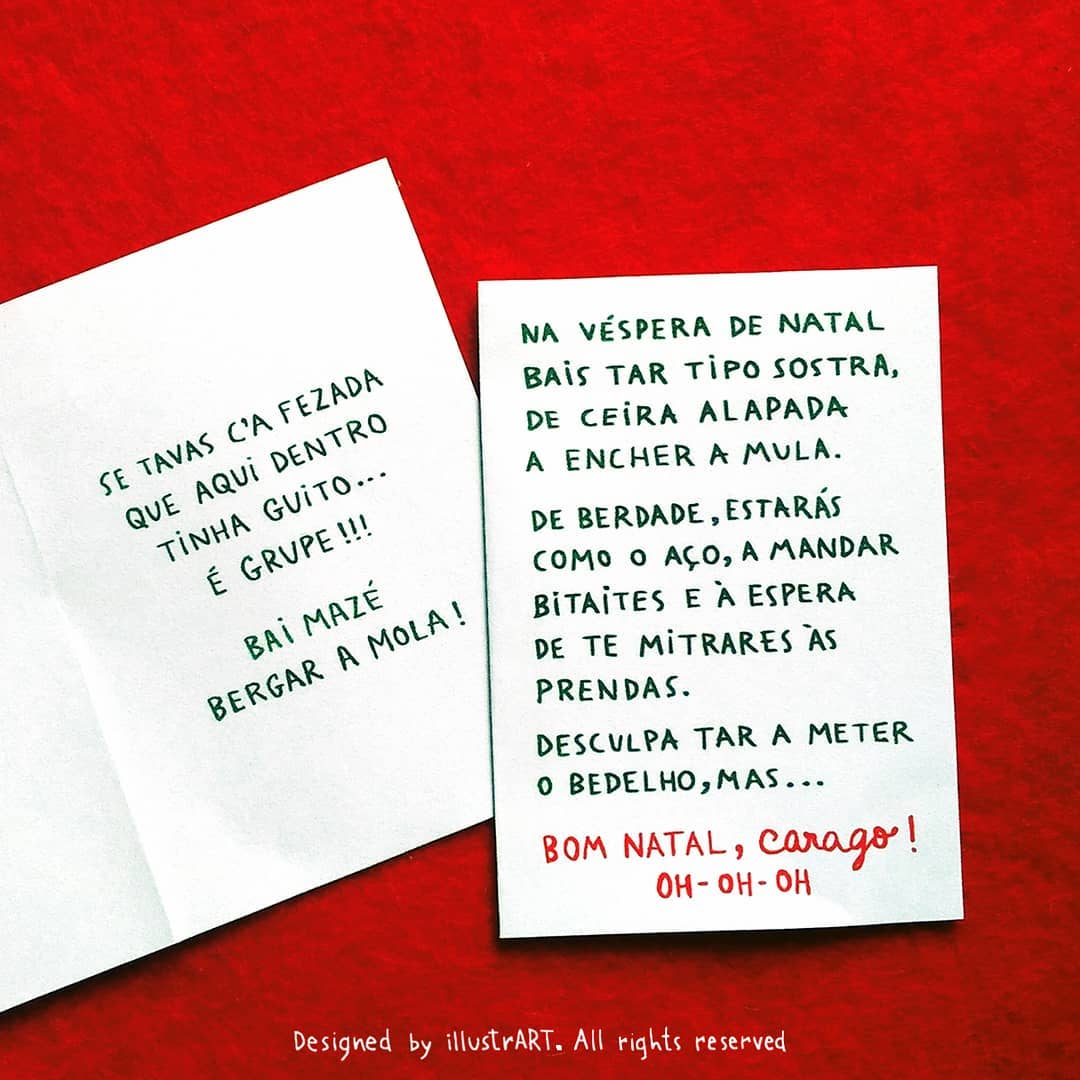 SE TAVAS C'A FEZADA
QUE AQUI DENTRO
TINHA GUITO...
É GRUPE!!!
BAI MAZÉ
BERGAR A MOLA!
NA VÉSPERA DE NATAL
BAIS TAR TIPO SOSTRA,
DE CEIRA ALAPADA
A ENCHER A MULA.
DE BERDADE, ESTARÁS
COMO O AÇO, A MANDAR
BITAITES E À ESPERA
DE TE MITRARES ÀS
PRENDAS.
DESCULPA TAR A METER
O BEDELHO, MAS...
BOM NATAL, carago!
OH-OH-OH
Designed by illustrART. All rights reserved